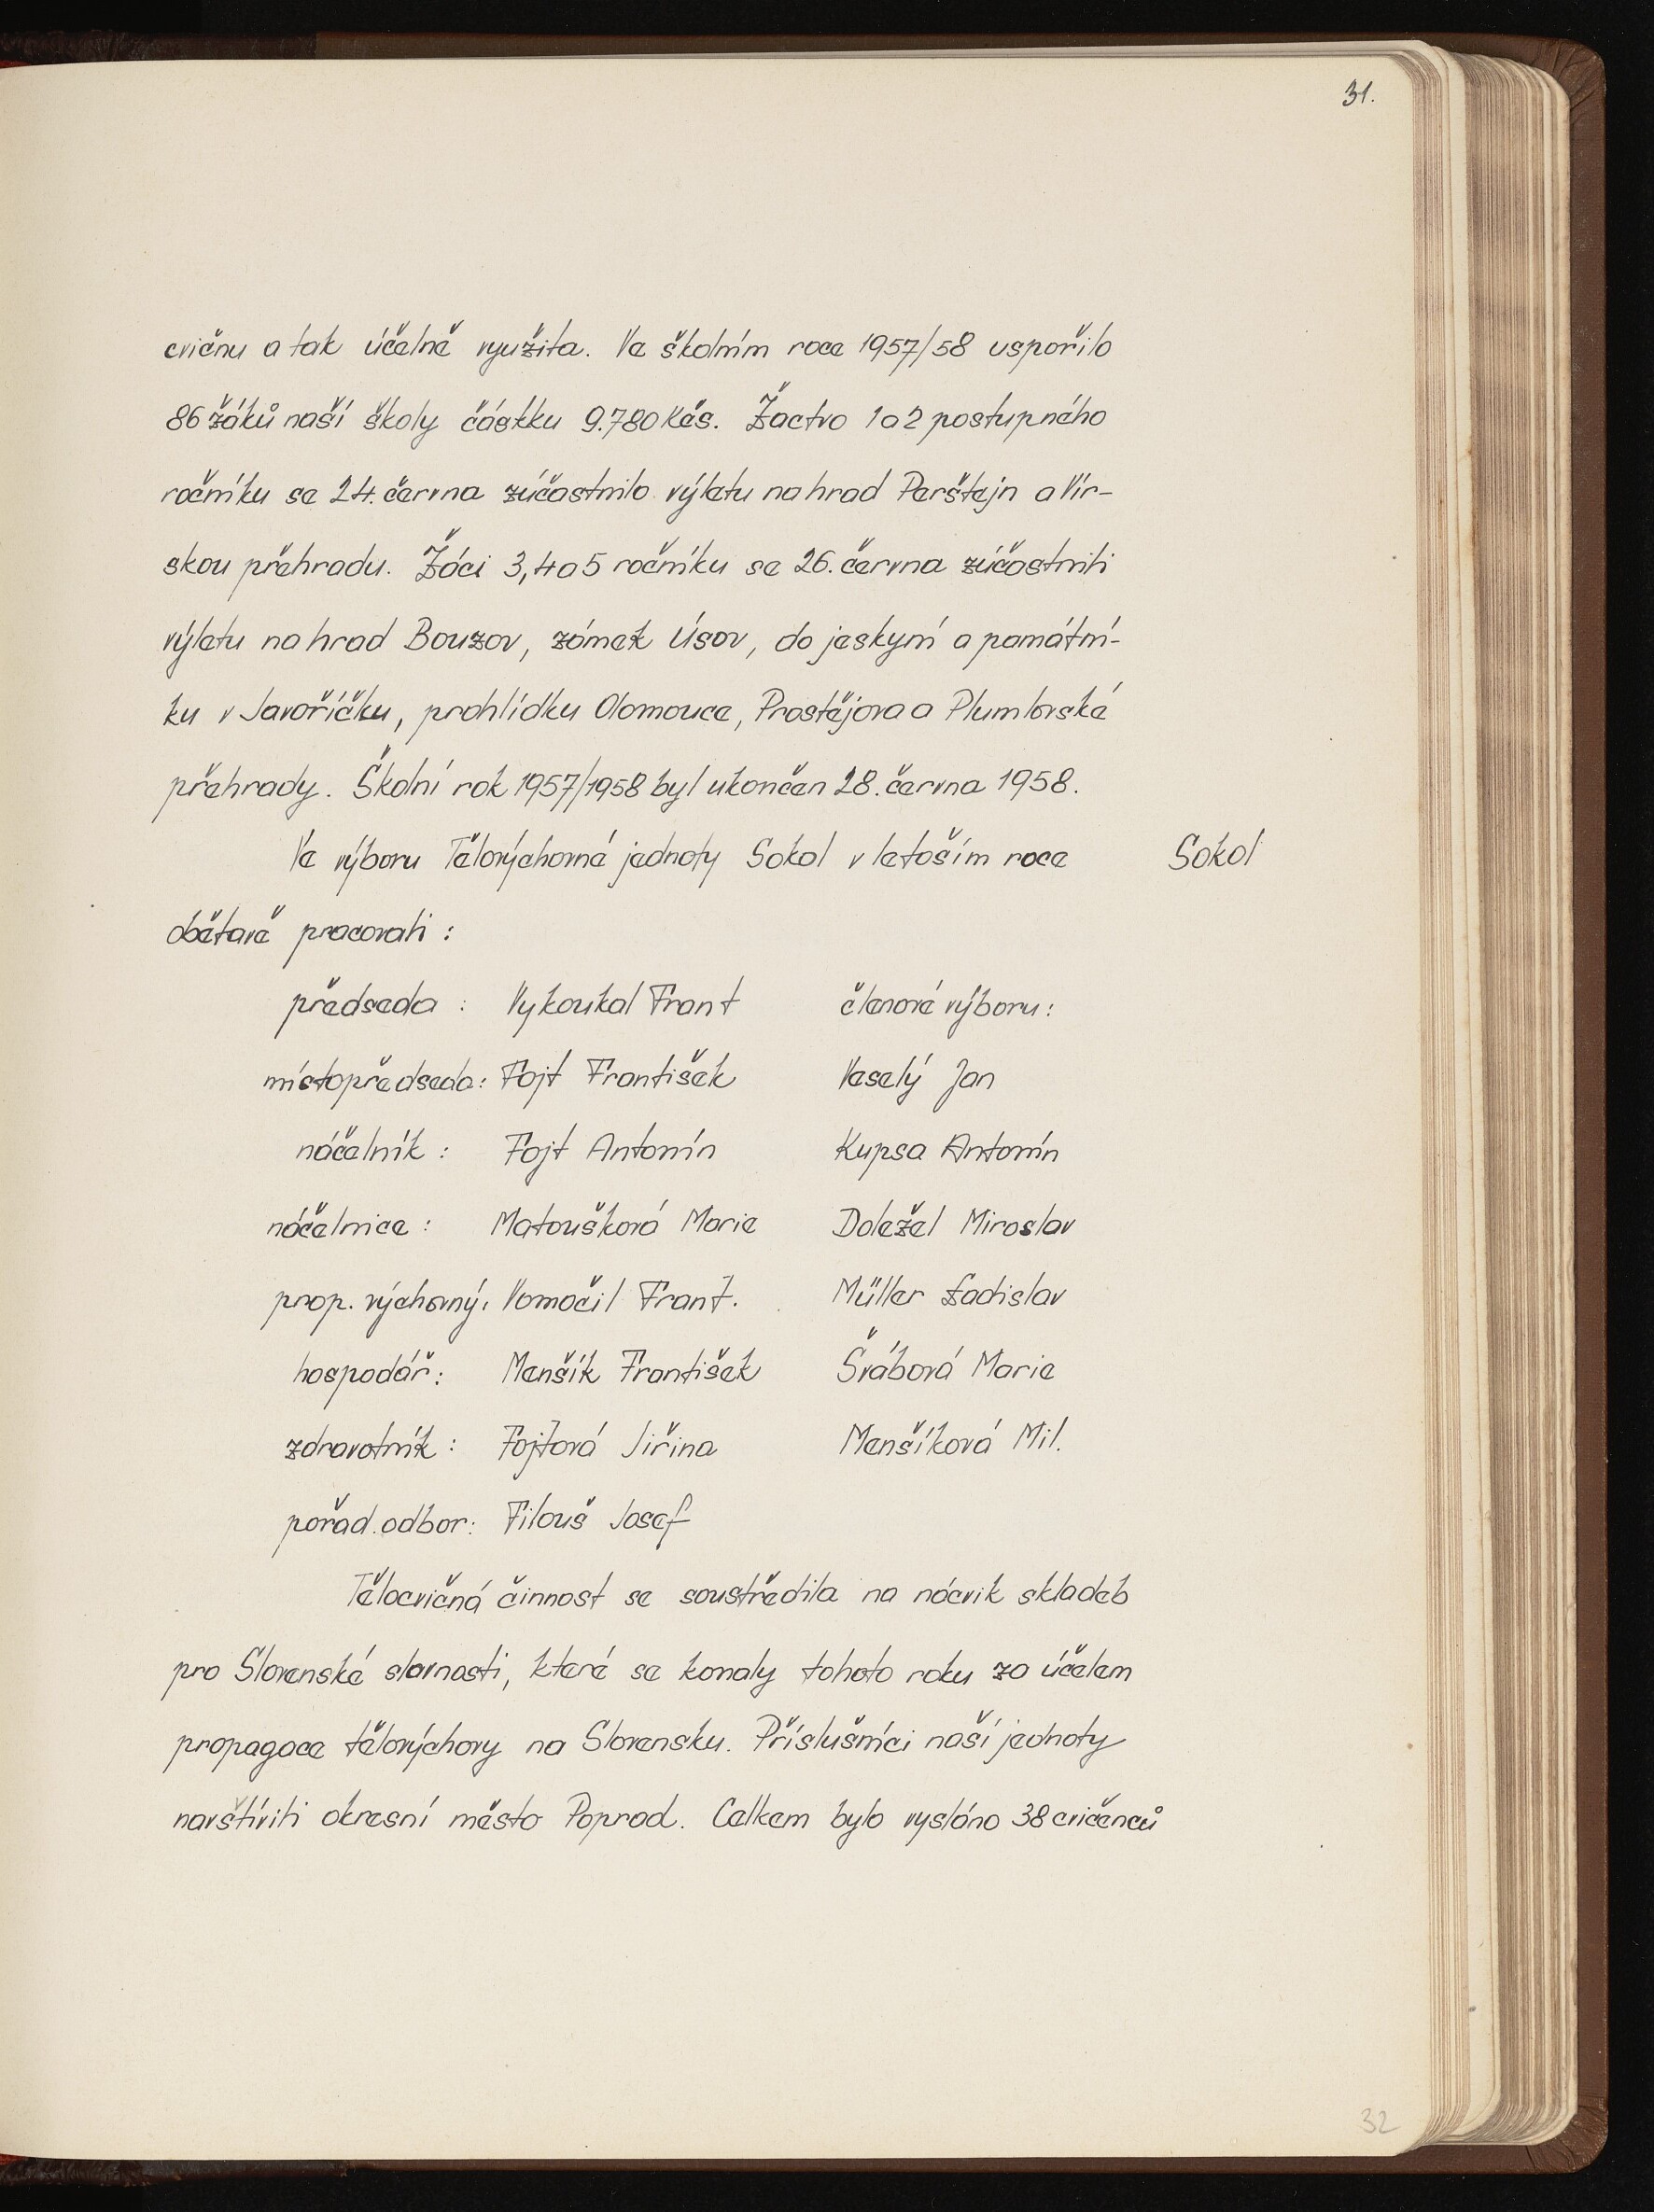 31.
cvičnu a tak účelně využita. Ve školním roce 1957/58 uspořilo
86 žáků naší školy částku 9.780 Kčs. Žactvo 1 a 2 postupného
ročníku se 24. června zúčastnilo výletu na hrad Perštejn a Vír-
skou přehradu. Žáci 3, 4 a 5 ročníku se 26. června zúčastnili
výletu na hrad Bouzov, zámek Úsov, do jeskyní a památní-
ku v Javoříčku, prohlídku Olomouce, Prostějova a Plumlovské
přehrady. Školní rok 1957/1958 byl ukončen 28. června 1958.
Ve výboru Tělovýchovné jednoty Sokol v letošním roce Sokol
obětavě pracovali :
předseda : Vykoukal Frant členové výboru :
místopředseda : Fojt František Veselý Jan
náčelník : Fojt Antonín Kupsa Antonín
náčelnice : Matoušková Marie Doležel Miroslav
prop. výchovný : Vomočil Frant. Müller Ladislav
hospodář : Menšík František Švábová Marie
zdravotník : Fojtová Jiřina Menšíková Mil.
pořad. odbor : Filouš Josef
Tělocvičná činnost se soustředila na nácvik skladeb
pro Slovenské slavnosti, které se konaly tohoto roku za účelem
propagace tělovýchovy na Slovensku. Příslušníci naší jednoty
navštívili okresní město Poprad. Celkem bylo vysláno 38 cvičenců
32